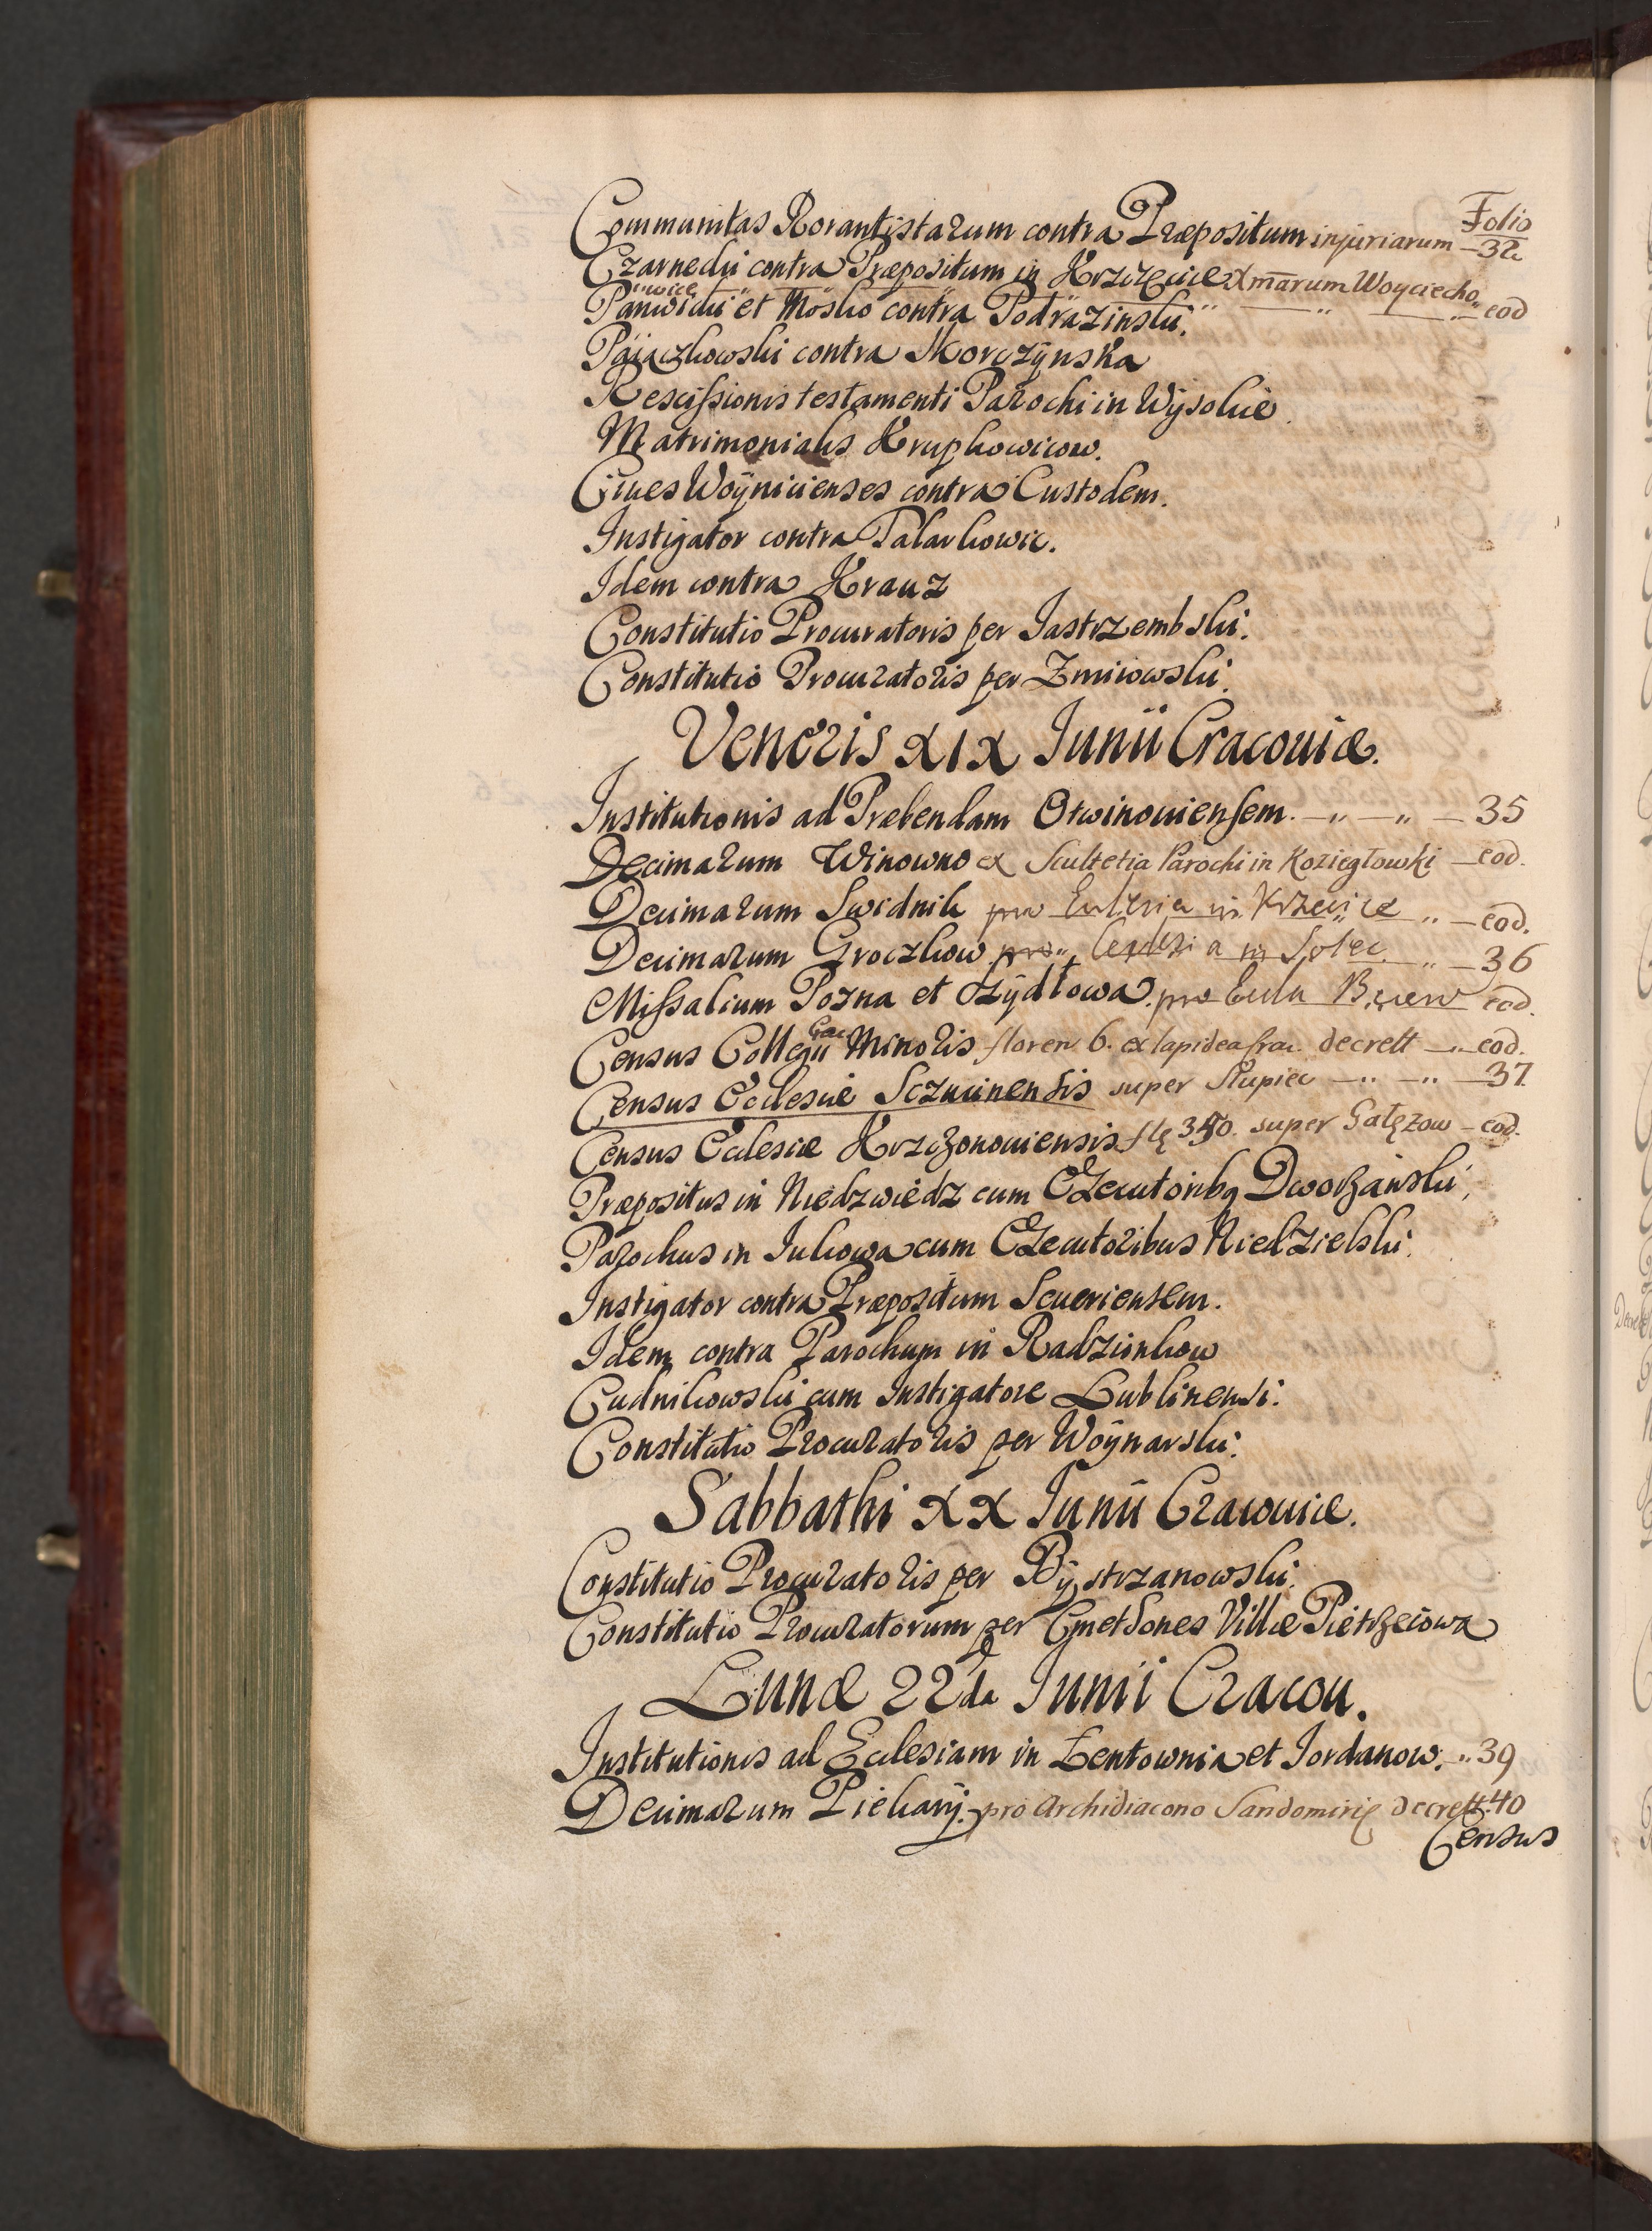 Folio
Communitas Rorantistarum contra Præpositum injuriarum — 32
Czarnecki contra Præpositum in Krzczęcice Xmarum Woyciecho„
„wice — eod
Paniwicki et Mosko contra Podrazinski.
Paiączkowski contra Skorczÿnska
Rescissionis testamenti Parochi in Wÿsokie
Matrimonialis Krupkowicow.
Ciues Woÿnicienses contra Custodem.
Instigator contra Talarkowic.
Idem contra Krauz
Constitutio Procuratoris per Jastrzembski.
Constitutio Procuratoris per Zmiiowski.
Veneris XIX Junii Cracouiæ.
Institutionis ad Præbendam Otwinouiensem. — „ — „ — 35
Decimarum Winowno ex Scultetia Parochi in Koziegłowki — eod.
Decimarum Swidnik pro in Krzęcice „ — eod.
Decimarum Groczkow pro „ in „ — 36
Missalium Pozna et Ożÿdłowa. pro eod.
Census Collegii Crac Minoris floren 6. ex lapidea Crac. decrett — „ eod.
Census Ecclesiæ Sczucinensis super Słupiec — „ — „ — 37
Census Ecclesiæ Krzczonouiensis flę 350. super Gałęzow — eod.
Præpositus in Niedzwiedz cum Executoribq Dworzanski.
Parochus in Jukowa cum Executoribus Niedzielski.
Instigator contra Præpositum Seueriensem.
Idem contra Parochum in Radzionkow
Cudnikowski cum Instigatore Lublinensi.
Constitutio Procuratoris per Woÿnarski.
Sabbathi XX Junii Cracouiæ.
Constitutio Procuratoris per Bÿstrzanowski.
Constitutio Procuratorum per Cmethones Villæ Pietrzeiowa
Lunæ 22da Junii Cracou.
Institutionis ad Ecclesiam in Łentownia et Jordanow. — „ 39
Decimarum Piekarÿ. pro Archidiacono Sandomirię decrett. 40
Census